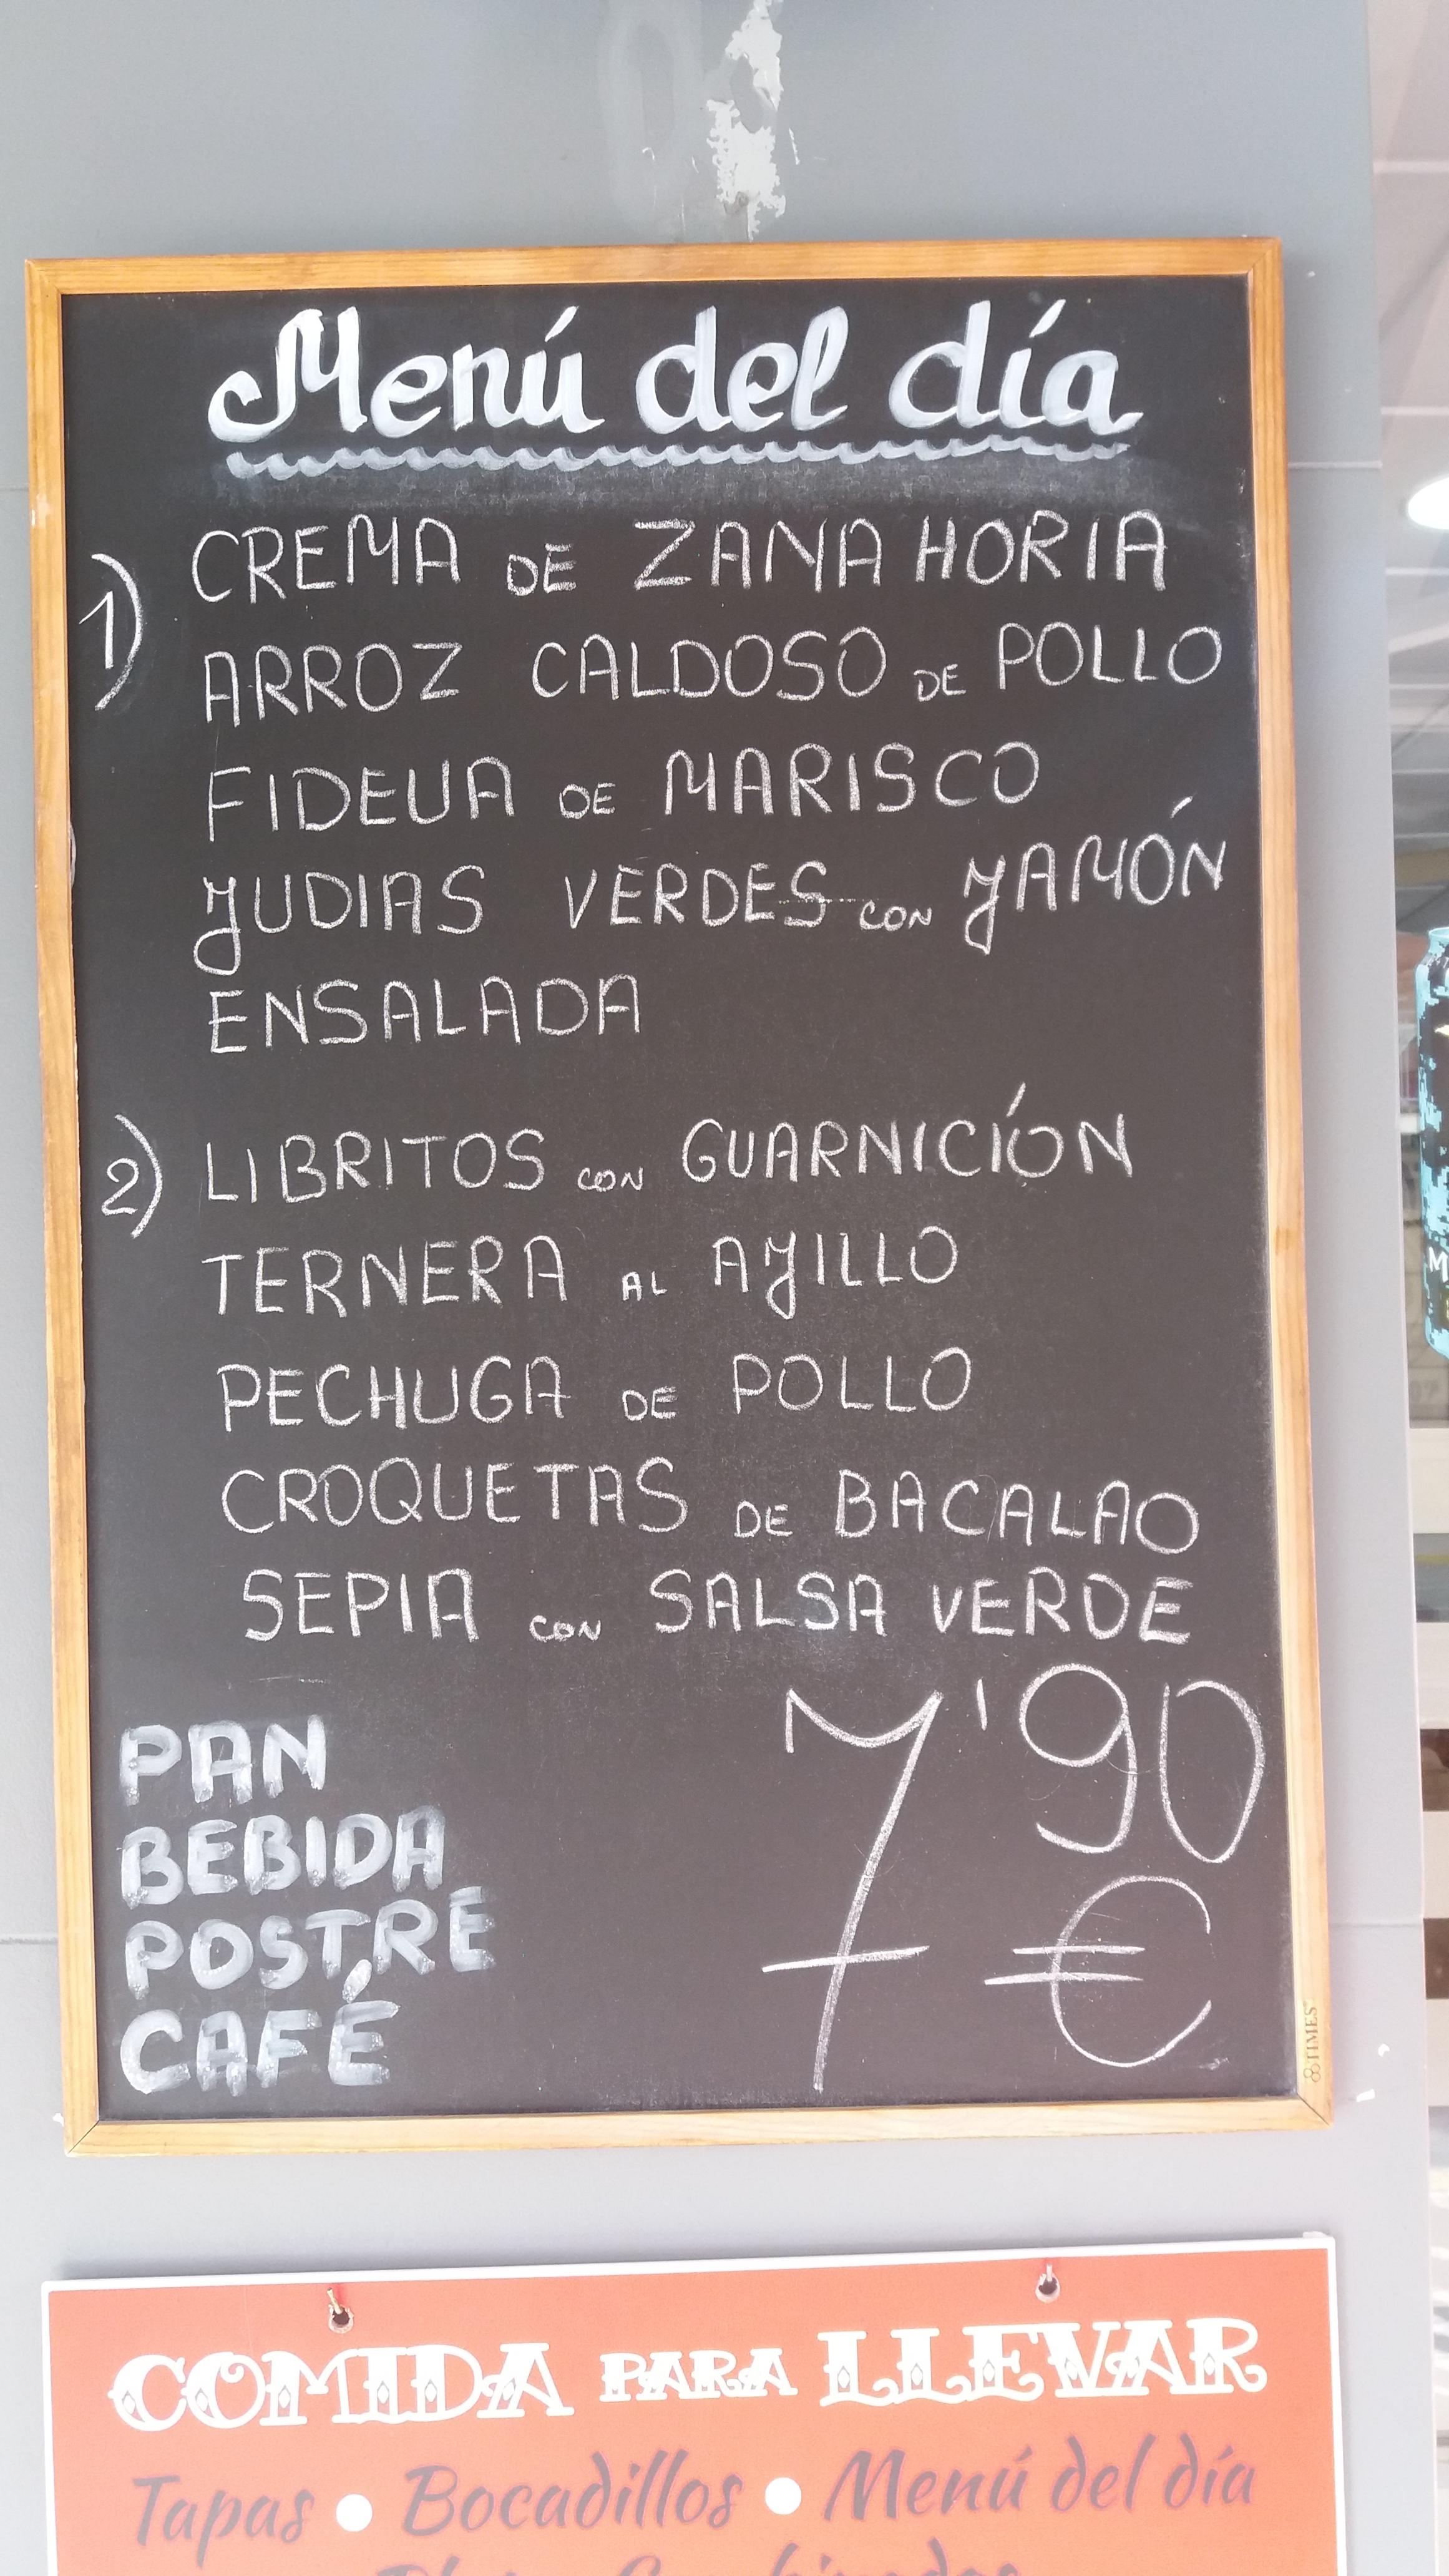 Menú del día
1) CREMA DE ZANAHORIA
ARROZ CALDOSO DE POLLO
FIDEUA DE MARISCO
JUDIAS VERDES CON JAMÓN
ENSALADA
2) LIBRITOS CON GUARNICIÓN
TERNERA AL AJILLO
PECHUGA DE POLLO
CROQUETAS DE BACALAO
SEPIA CON SALSA VERDE
7'90 €
PAN
BEBIDA
POSTRE
CAFÉ
TIMES
COMIDA PARA LLEVAR
Tapas • Bocadillos • Menú del día